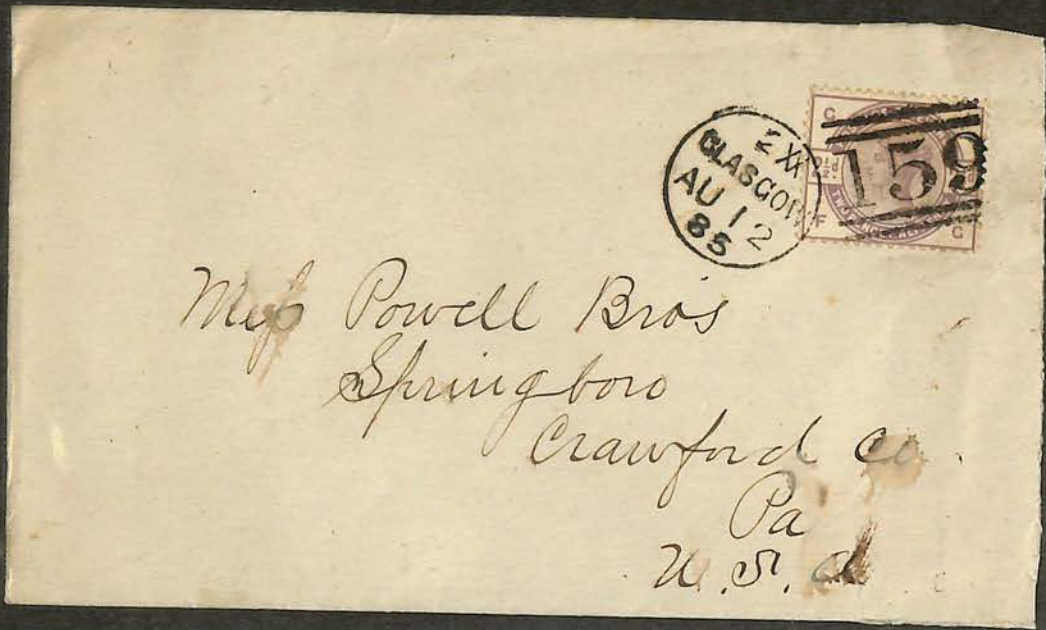 2 XX
GLASGOW
AU 12
85
159
G
2½d
F G
Mess Powell Bro's
Springboro
Crawford Co.
Pa
U.S.A